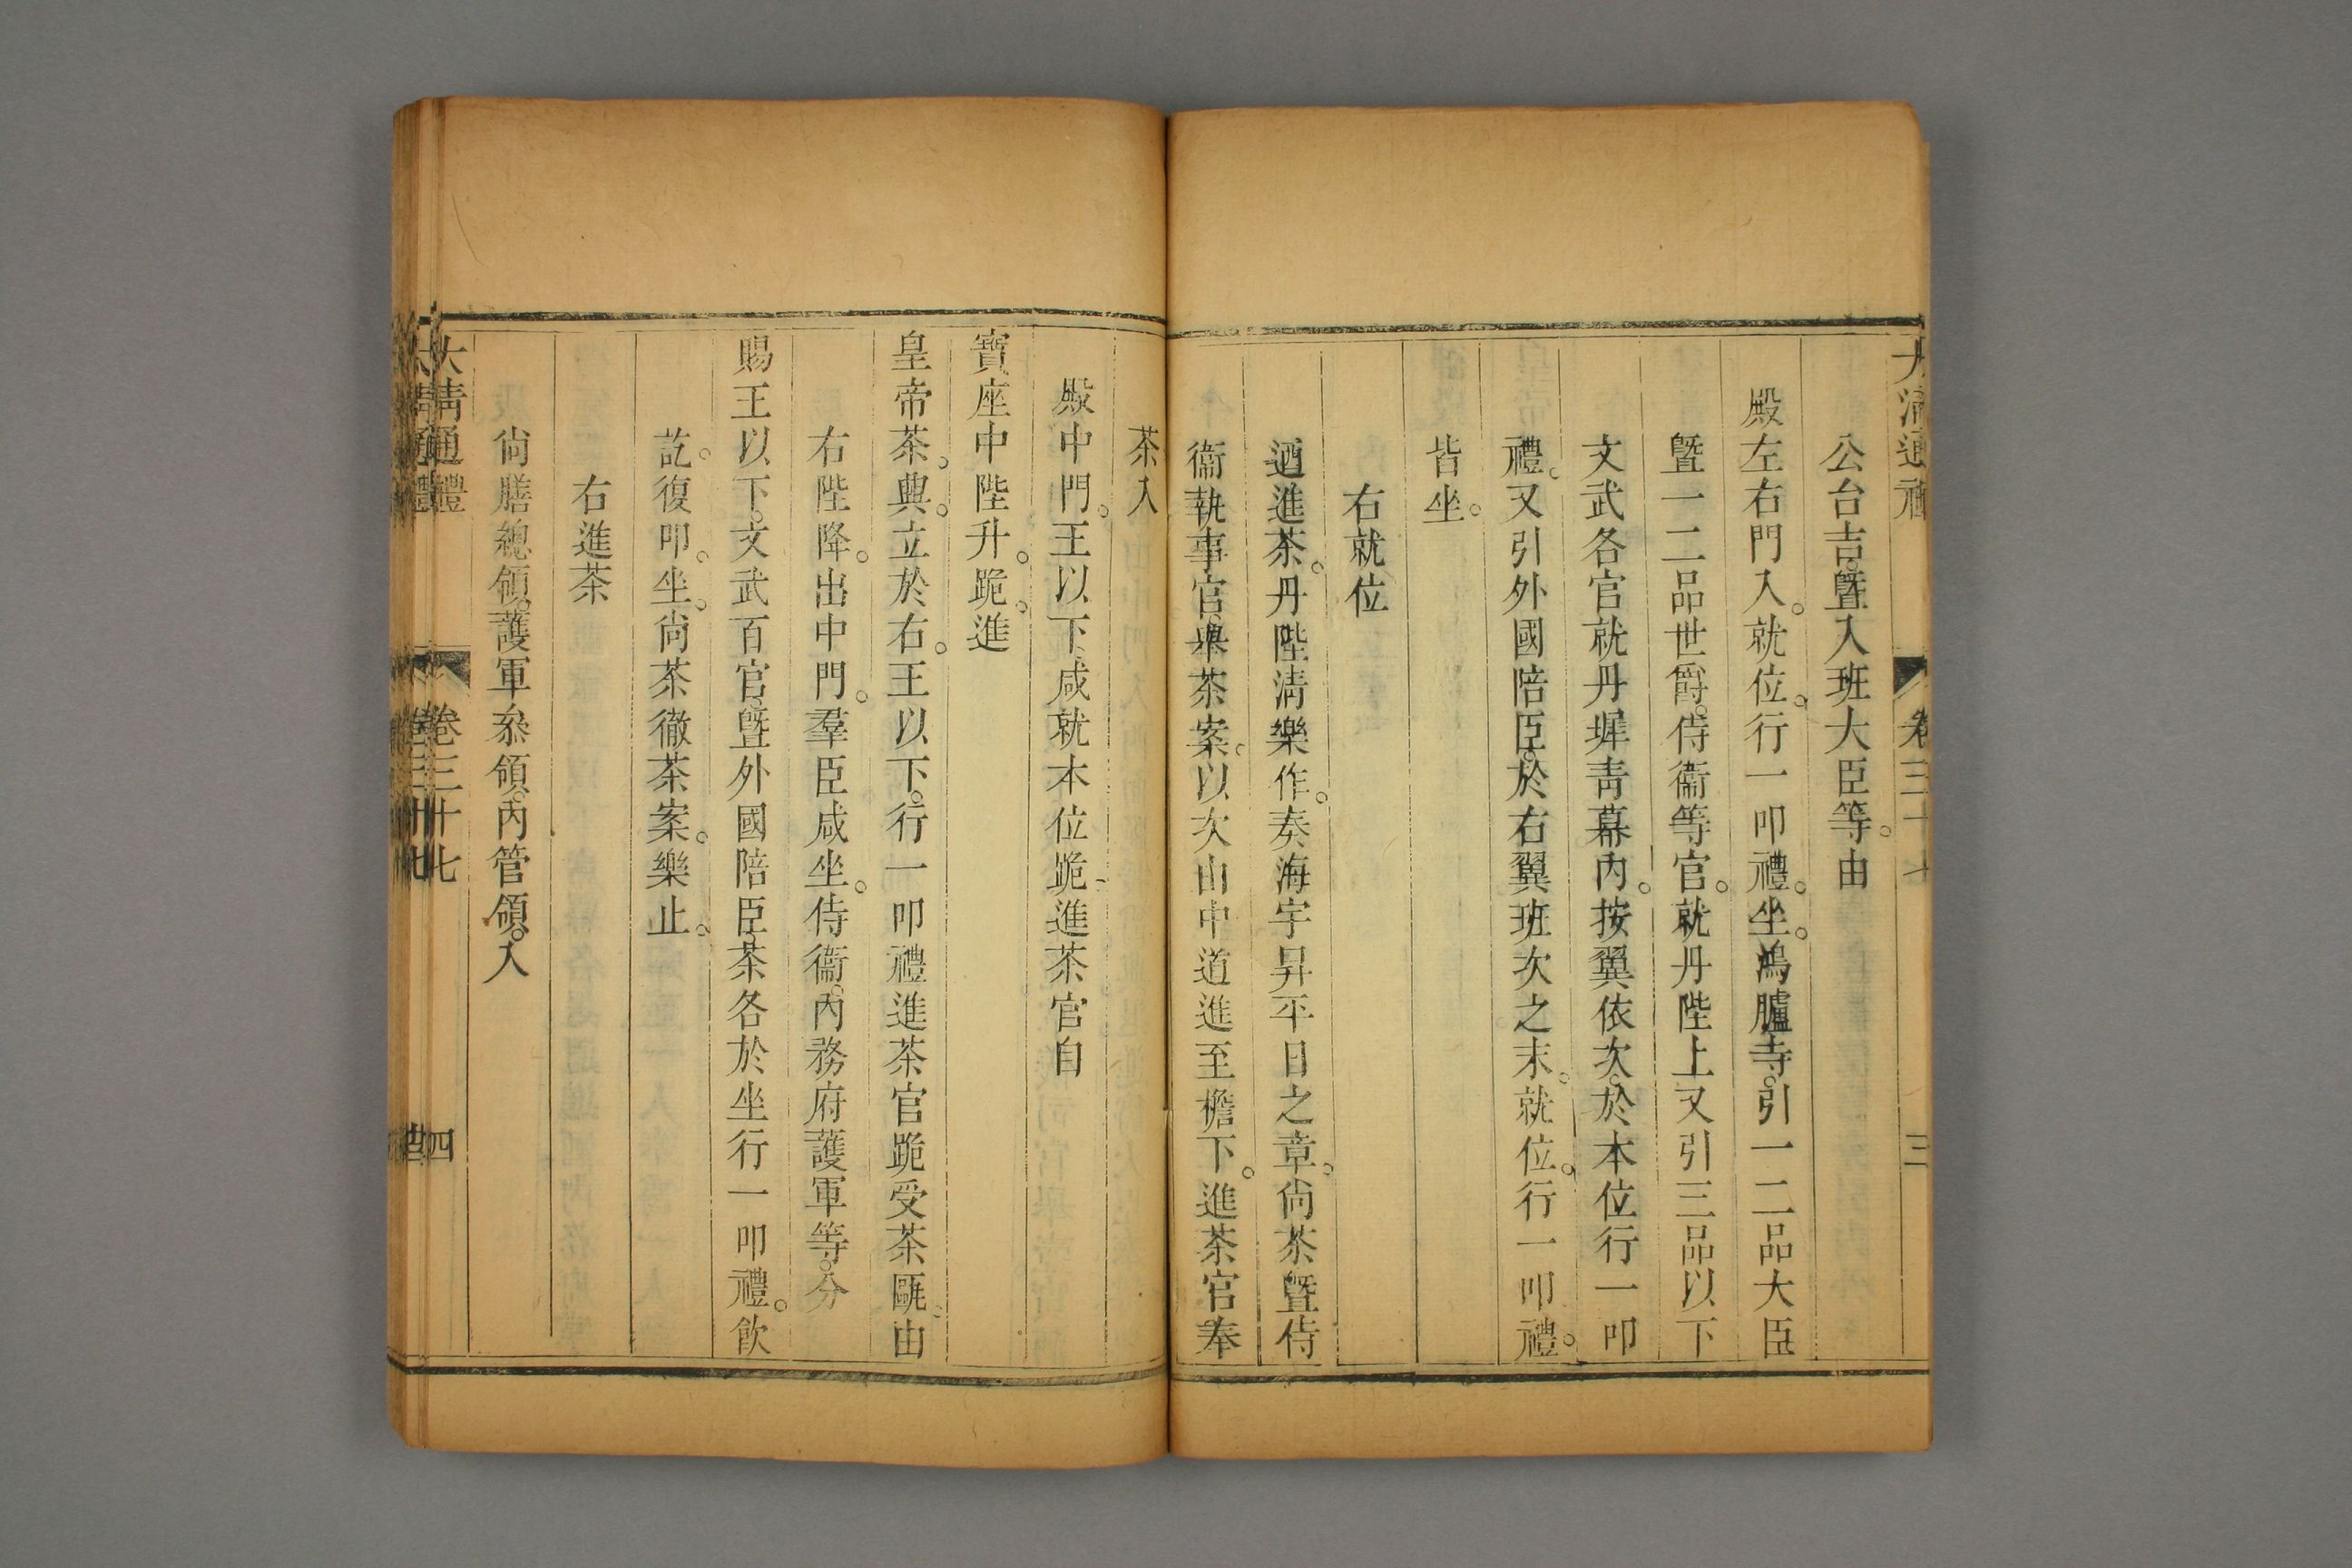 大清通禮　卷三十七　三
公台吉。曁入班大臣等。由
殿左右門入。就位。行一叩禮。坐。鴻臚寺。引一二品大臣
曁一二品世爵。侍衞等官。就丹陛上又引三品以下
文武各官就丹墀靑幕內。按翼依次。於本位行一叩
禮。又引外國陪臣。於右翼班次之末。就位。行一叩禮。
皆坐。
右就位
迺進茶。丹陛淸樂作。奏海宇昇平日之章。尙茶曁侍
衞執事官。舉茶案。以次由中道進至檐下。進茶官奉
茶入
殿中門。王以下咸就本位跪。進茶官自
寶座中陛升。跪。進
皇帝茶。興。立於右。王以下。行一叩禮進茶官跪受茶甌。由
右陛降。出中門。羣臣咸坐。侍衞。內務府護軍等。分
賜王以下。文武百官。曁外國陪臣。茶各於坐行一叩禮。飮
訖。復叩。坐。尙茶徹茶案。樂止。
右進茶
尙膳總領。護軍叅領。內管領。入
大淸通禮　卷三十七　四